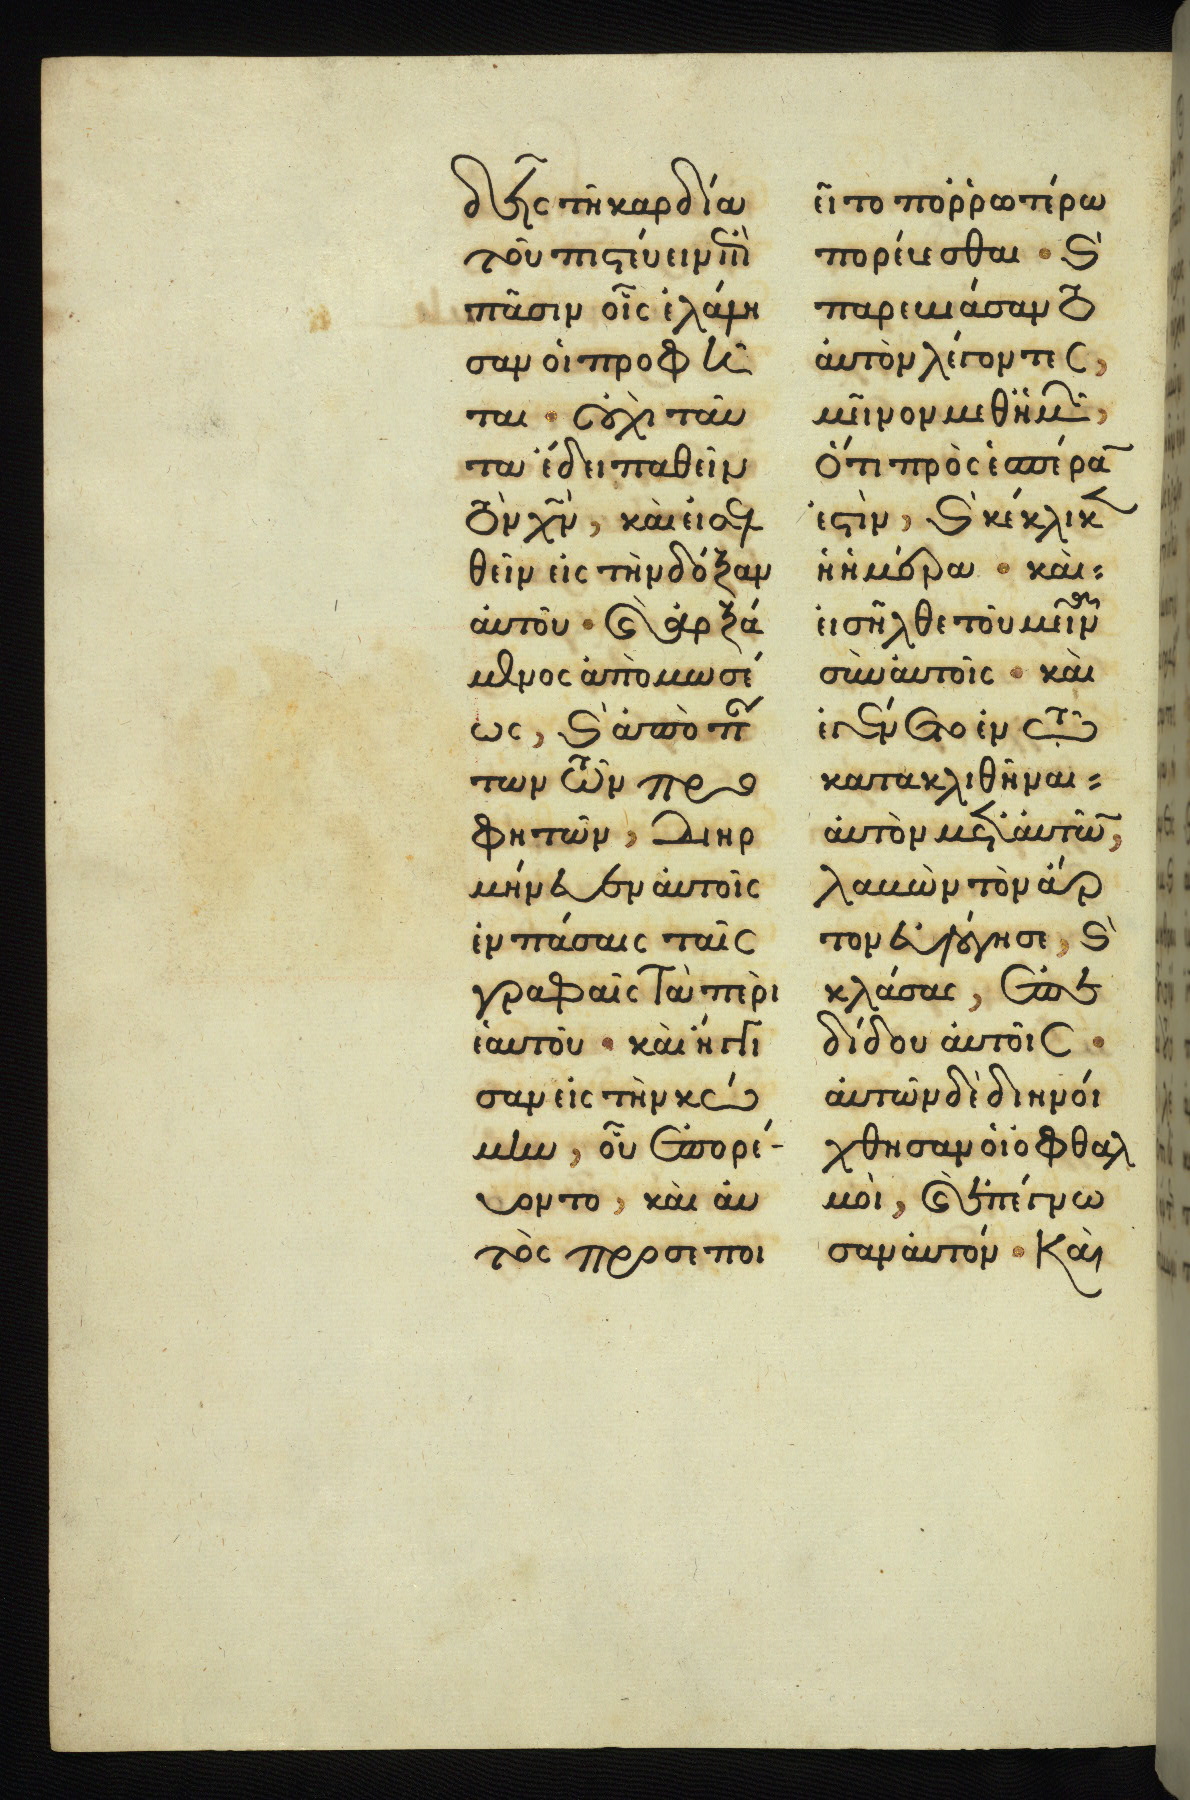 δεῖς τῆ καρδία
τοῦ πιστεύειν ἐπὶ
πᾶσιν οἷς ἐλάλη
σαν οἱ προφῆ
ται · οὐχὶ ταῦ
τα ἔδει παθεῖν
τὸν χν̅, καὶ εἰσελ
θεῖν εἰς τὴν δόξαν
αὐτοῦ · καὶ ἀρξά
μενος ἀπὸ μωσέ
ως, καὶ ἀπὸ πάν
των τῶν προ
φητῶν, διηρ
μήνευεν αὐτοῖς
ἐν πάσαις ταῖς
γραφαῖς τὰ περὶ
ἑαυτοῦ · καὶ ἤγγι
σαν εἰς τὴν κώ
μην, οὗ ἐπορεύ-
οντο, καὶ αὐ
τὸς προσεποι
εῖτο πορρωτέρω
πορεύεσθαι · καὶ
παρεβιάσαντο
αὐτὸν λέγοντες,
μεῖνον μεθ ἡμῶν,
ὅτι πρὸς ἑσπέραν
ἐστὶν, καὶ κέκλικεν
ἡ ἡμέρα · καὶ=
εἰσῆλθε τοῦ μεῖναι
σὺν αὐτοῖς · καὶ
ἐγένετο ἐν τῷ
κατακλιθῆναι=
αὐτὸν μετ αὐτῶν,
λαβὼν τὸν ἄρ
τον εὐλόγησε, καὶ
κλάσας, ἐπε
δίδου αὐτοῖς ·
αὐτῶν δὲ διηνοί
χθησαν οἱ ὀφθαλ
μοὶ, καὶ ἐπέγνω
σαν αὐτόν · Καὶ